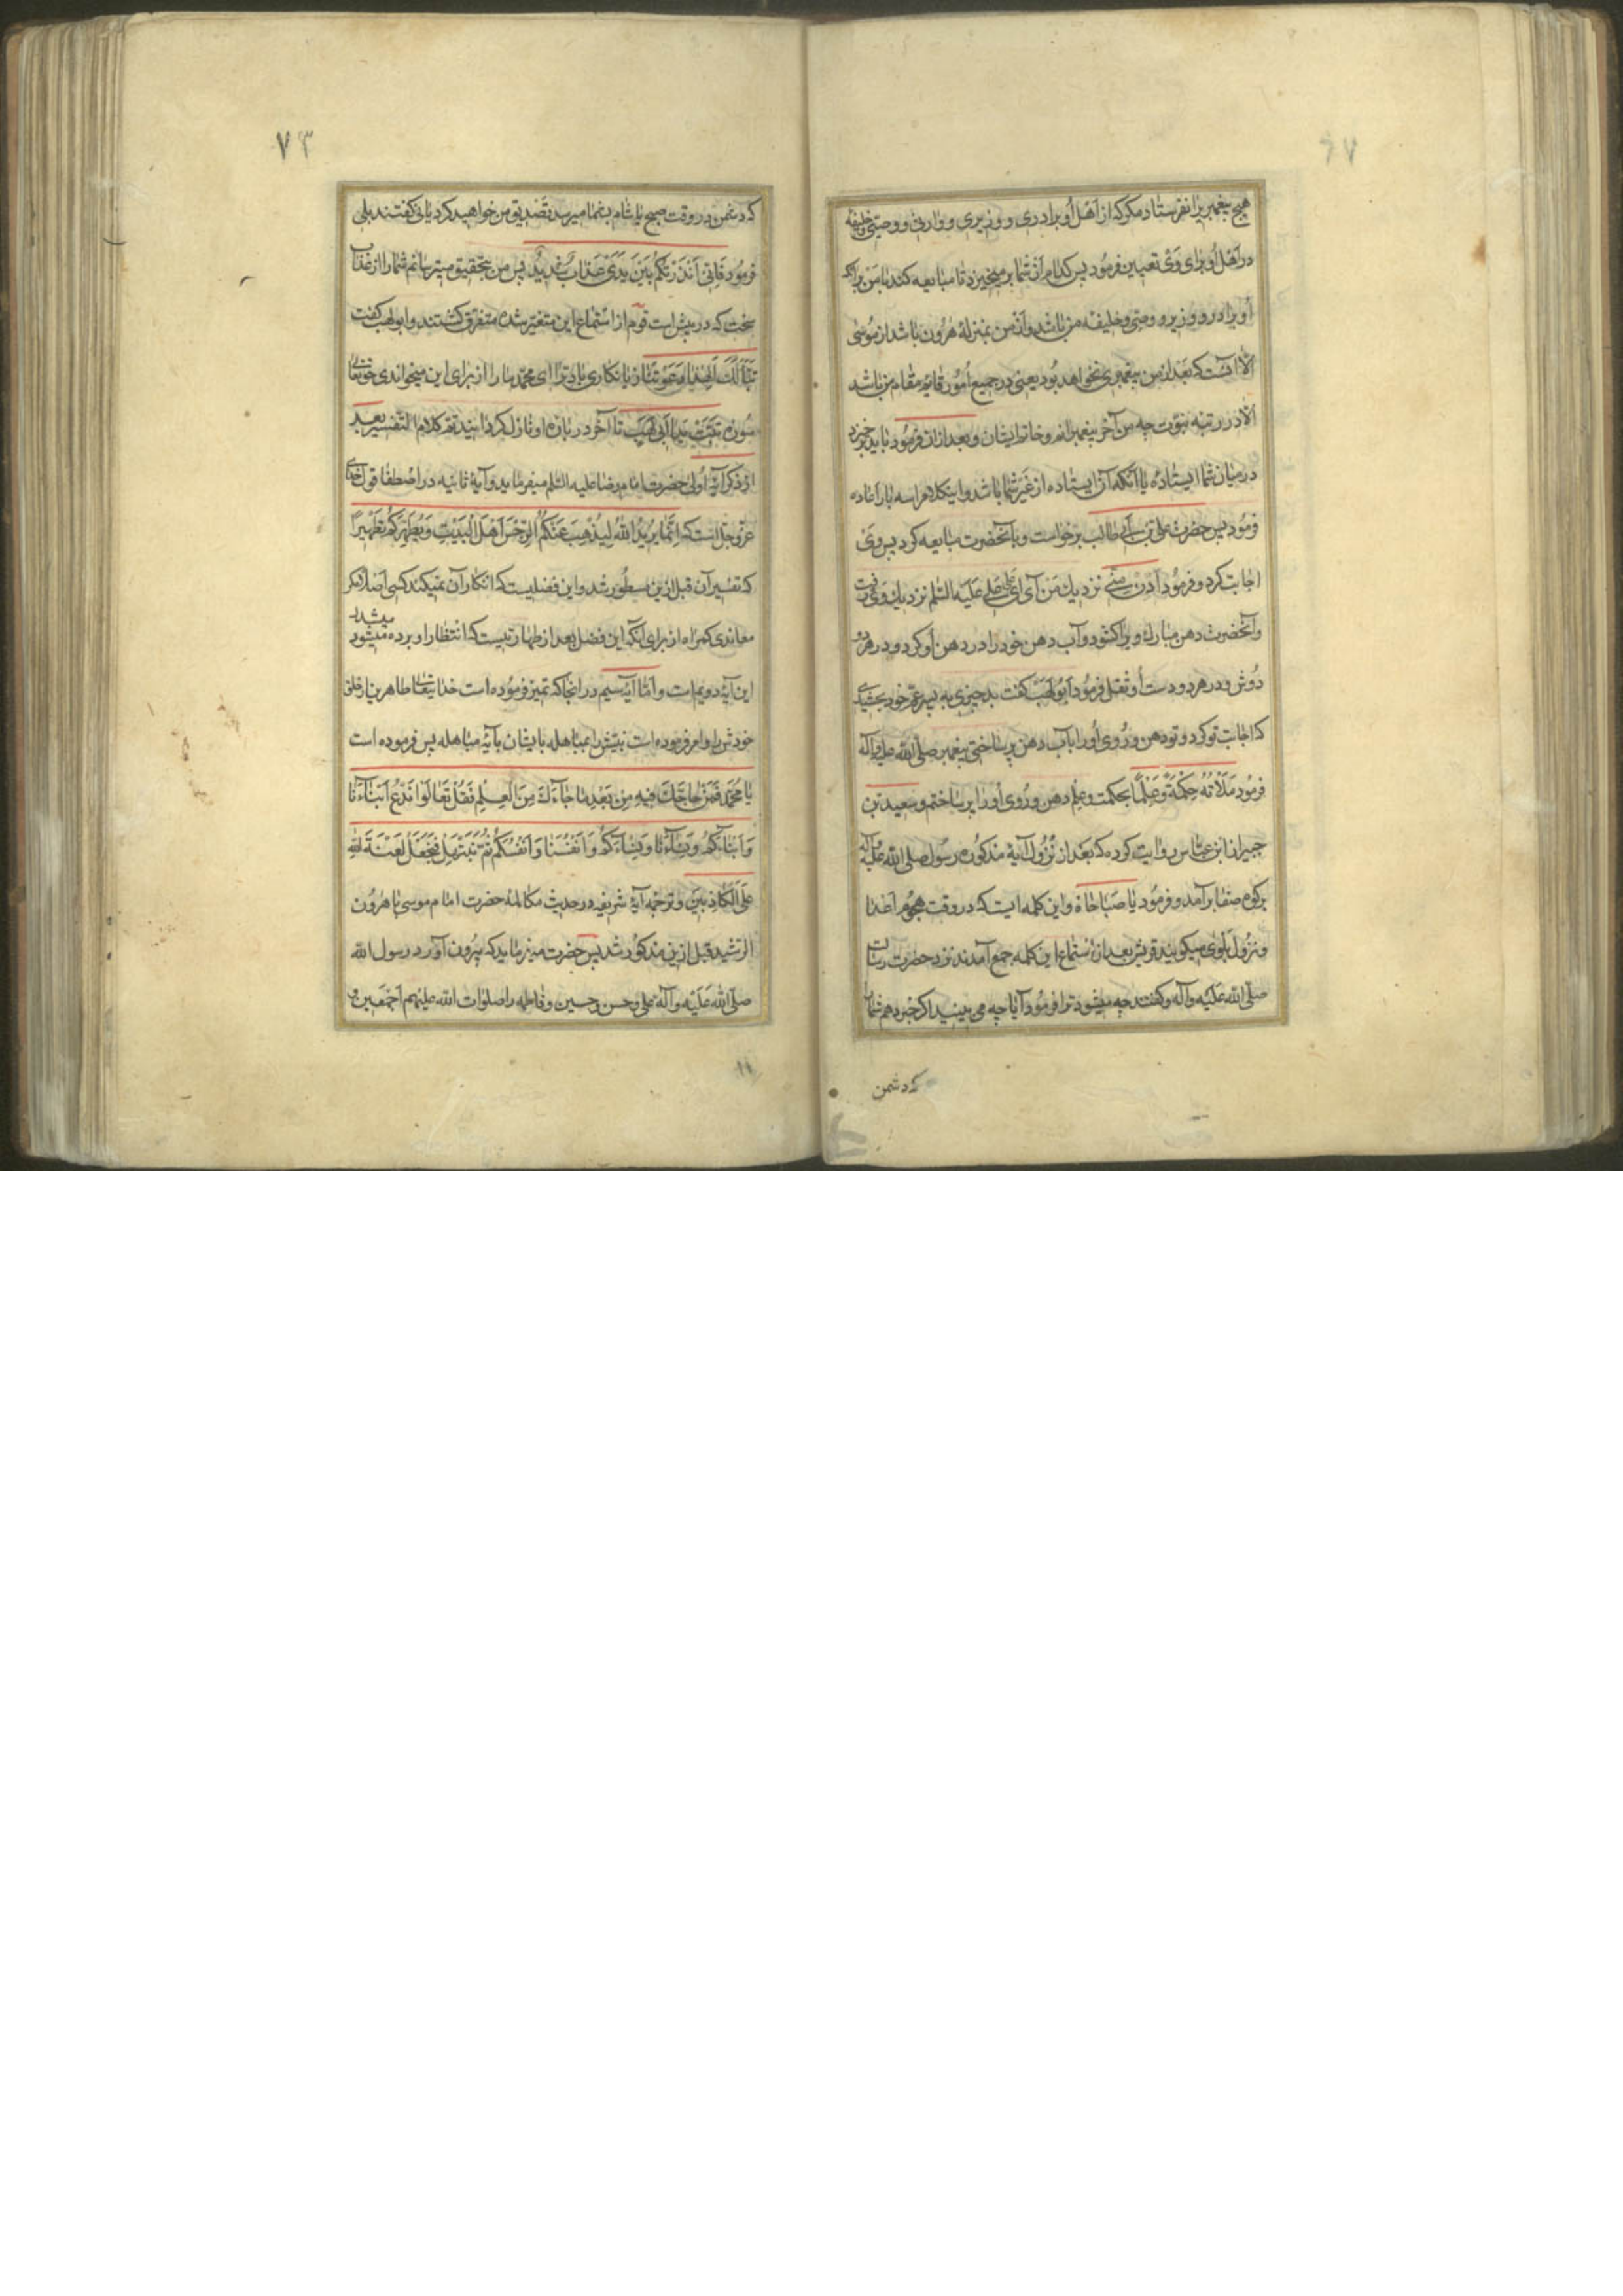 هیچ پیغمبریرا نفرستاد مکر که از اهل او برادری و وزیری و وارثی و وصیّی و خلیفه
در اهل او برای وی تعیین فرمود پس کدام از شما برمیخیزد تا مبایعه کند با من برانکه
او برادر و وزیر و وصیّ و خلیفه من باشد و از من بمنزلهٔ هرون باشد از موسی
الا آنست که بعد از من پیغمبری نخواهد بود یعنی در جمیع امور قایم مقام من باشد
الا در رتبه نبوّت چه من آخر پیغمبرانم و خاتم ایشان و بعد از ان فرمود باید برخیزد
در میان شما ایستاده یا آنکه آن ایستاده از غیر شما باشد و اینکلام را سه بار اعاده
فرمود پس حضرت علی بن ابی طالب برخواست و با آنحضرت مبایعه کرد پس وی
اجابت کرد و فرمود اُدن منّی نزدیك من آی ای علی علی علیه السّلم نزدیك وی رفت
و آنحضرت دهن مبارك وی را کشود و آب دهن خود را در دهن او کرد و در هر دو
دوش و در هر دو دست او ثفل فرمود ابو لهب کفت بد چیزی به پسر عمّ خود بخشیدی
که اجابت تو کرد و تو دهن و روی او را با آب دهن پر ساختی پیغمبر صلّی الله علیه و آله
فرمود مَلَأتُهُ حِکمَةً وَعِلمًا بحکمت و علم دهن و روی او را پر ساختم و سعید بن
جبیر از ابن عباس روایت کرده که بعد از نزول آیهٔ مذکوره رسول صلی الله علیه و آله
بر کوه صفا بر آمد و فرمود یا صَباحاهْ و این کلمه ایست که در وقت هجوم اعدا
و نزول بلوی میکویند قریش بعد از استماع این کلمه جمع آمدند نزد حضرت رسالت
صلّی الله علیه و آله و کفتند چه میشود ترا فرمود آیا چه می بینید اکر خبر دهم شما را
که دشمن
٧٣
که دشمن در وقت صبح یا شام بشما میرسد تصدیق من خواهید کرد یا نی کفتند بلی
فرمود فَاِنّی اَنذَرتُکُم بَینَ یَدَی عَذابٍ شَدیدٍ پس من بتحقیق میترسانم شما را از عذاب
سخت که در پیش است قوم از استماع این متغیّر شده متفرّق کشتند و ابو لهب کفت
تَبًّا لَكَ اَلِهذا دَعَوتَنا زیانکاری باد ترا ای محمّد ما را از برای این میخواندی حقتعالی
سوره تَبَّت یَدا اَبی لَهَبٍ تا آخر در باره او نازل کردانید تمّ کلام التفسیر بعد
از ذکر آیهٔ اولی حضرت امام رضا علیه السّلم میفرماید و آیهٔ ثانیه در اصطفا قول خدای
عزّ و جلّ است که اِنَّما یُریدُ اللهُ لِیُذهِبَ عَنکُمُ الرِّجسَ اَهلَ البَیتِ وَیُطَهِّرَکُم تَطهیرًا
که تفسیر آن قبل ازین مسطور شد و این فضلیست که انکار آن نمیکند کسی اصلا مکر
معاندی کمراه از برای آنکه این فضل بعد از طهارتیست که انتظار او برده میشود
میشد
این آیهٔ دویم است و امّا آیهٔ سیم در انجا که تمیز فرموده است خدایتعالی طاهرین از خلق
خودش را و امر فرموده است نبیّش را بمباهله بایشان بآیهٔ مباهله پس فرموده است
یا مُحَمَّد فَمَن حاجَّكَ فیهِ مِن بَعدِ ما جاءَكَ مِنَ العِلمِ فَقُل تَعالَوا نَدعُ اَبناءَنا
وَ اَبناءَکُم وَ نِساءَنا وَ نِساءَکُم وَ اَنفُسَنا وَ اَنفُسَکُم ثُمَّ نَبتَهِل فَنَجعَل لَعنَةَ اللهِ
عَلَی الکاذِبینَ و ترجمهٔ آیهٔ شریفه در حدیث مکالمهٔ حضرت امام موسی با هرون
الرّشید قبل ازین مذکور شد پس حضرت میفرماید که بیرون آورد رسول الله
صلّی الله علیه و آله علی و حسن و حسین و فاطمه را صلوات الله علیهم اجمعین و